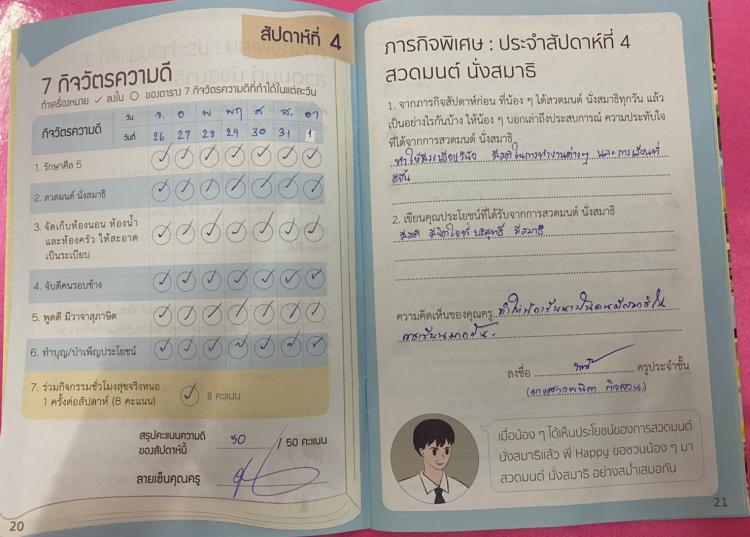 สัปดาห์ที่ 4
7 กิจวัตรความดี
ทำเครื่องหมาย ✓ ลงใน ○ ของตาราง 7 กิจวัตรความดีที่ทำได้ในแต่ละวัน
กิจวัตรความดี วัน จ. อ พ พฤ ศ ส. อา
วันที่ 26 27 28 29 30 31 1
1. รักษาศีล 5
2. สวดมนต์ นั่งสมาธิ
3. จัดเก็บห้องนอน ห้องน้ำ
และห้องครัว ให้สะอาด
เป็นระเบียบ
4. จับดีคนรอบข้าง
5. พูดดี มีวาจาสุภาษิต
6. ทำบุญ/บำเพ็ญประโยชน์
7. ร่วมกิจกรรมชั่วโมงสุขจริงหนอ
1 ครั้งต่อสัปดาห์ (8 คะแนน) ✓ 8 คะแนน
สรุปคะแนนความดี
ของสัปดาห์นี้ 50 / 50 คะแนน
ลายเซ็นคุณครู
20
ภารกิจพิเศษ : ประจำสัปดาห์ที่ 4
สวดมนต์ นั่งสมาธิ
1. จากภารกิจสัปดาห์ก่อน ที่น้อง ๆ ได้สวดมนต์ นั่งสมาธิทุกวัน แล้ว
เป็นอย่างไรกันบ้าง ให้น้อง ๆ บอกเล่าถึงประสบการณ์ ความประทับใจ
ที่ได้จากการสวดมนต์ นั่งสมาธิ
ทำให้มีระเบียบวินัย มีสติในการทำงานต่างๆ และการเรียนที่
ดีขึ้น
2. เขียนคุณประโยชน์ที่ได้รับจากการสวดมนต์ นั่งสมาธิ
มีสติ มีจิตใจที่บริสุทธิ์ มีสมาธิ
ความคิดเห็นของคุณครู ทำให้นักเรียน มีสมาธิใน
การเรียนมากขึ้น.
ลงชื่อ ครูประจำชั้น
เมื่อน้อง ๆ ได้เห็นประโยชน์ของการสวดมนต์
นั่งสมาธิแล้ว พี่ Happy ขอชวนน้อง ๆ มา
สวดมนต์ นั่งสมาธิ อย่างสม่ำเสมอกัน
21